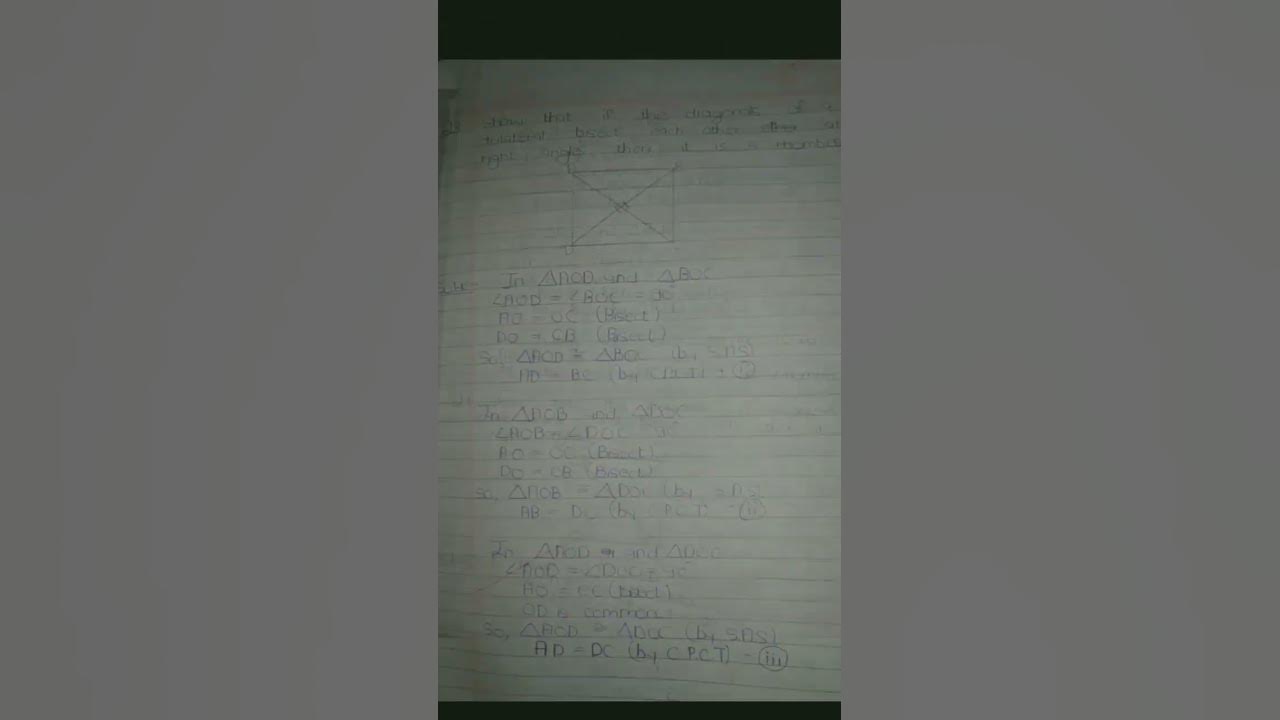 show that if the diagonals of a
bisect each other at
right angle then it is a rhombus
D
In △AOD and △BOC
∠AOD = ∠BOC = 90
AO = OC (Bisect)
DO = OB (Bisect)
So, △AOD ≅ △BOC (by SAS)
AD = BC (by CPCT) - (i)
In △AOB and △DOC
∠AOB = ∠DOC 90
AO = OC (Bisect)
DO = OB (Bisect)
So, △AOB ≅ △DOC (by SAS)
AB = DC (by CPCT) - (ii)
In △AOD and △DOC
∠AOD = ∠DOC = 90
AO = OC (Bisect)
OD is common
So, △AOD ≅ △DOC (by SAS)
AD = DC (by C.P.C.T) - (iii)